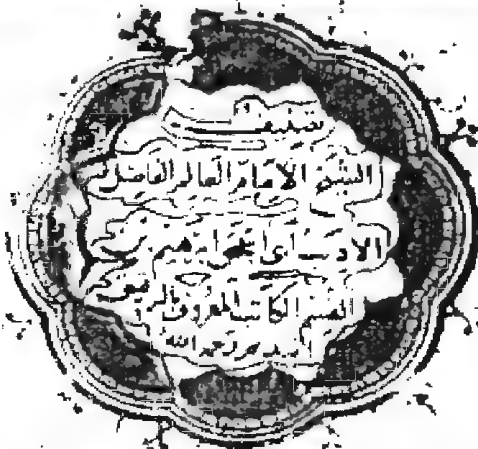 تصنيف
الشيخ الامام العالم الفاضل
الاديب ابى اسحق ابرهيم بن
القسم الكاتب المعروف بالرقيق
رحمه الله